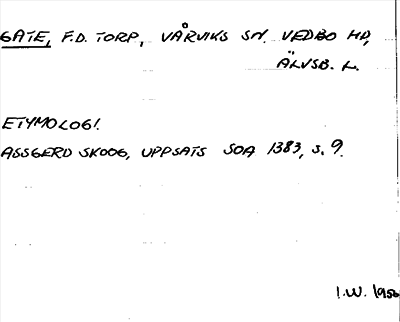 GATE, F.D. TORP, VÅRVIKS SN. VEDBO HD,
ÄLVSB. L.
ETYMOLOGI.
ASSGERD SKOOG, UPPSATS SOA 1383, s. 9.
I.W. 1950